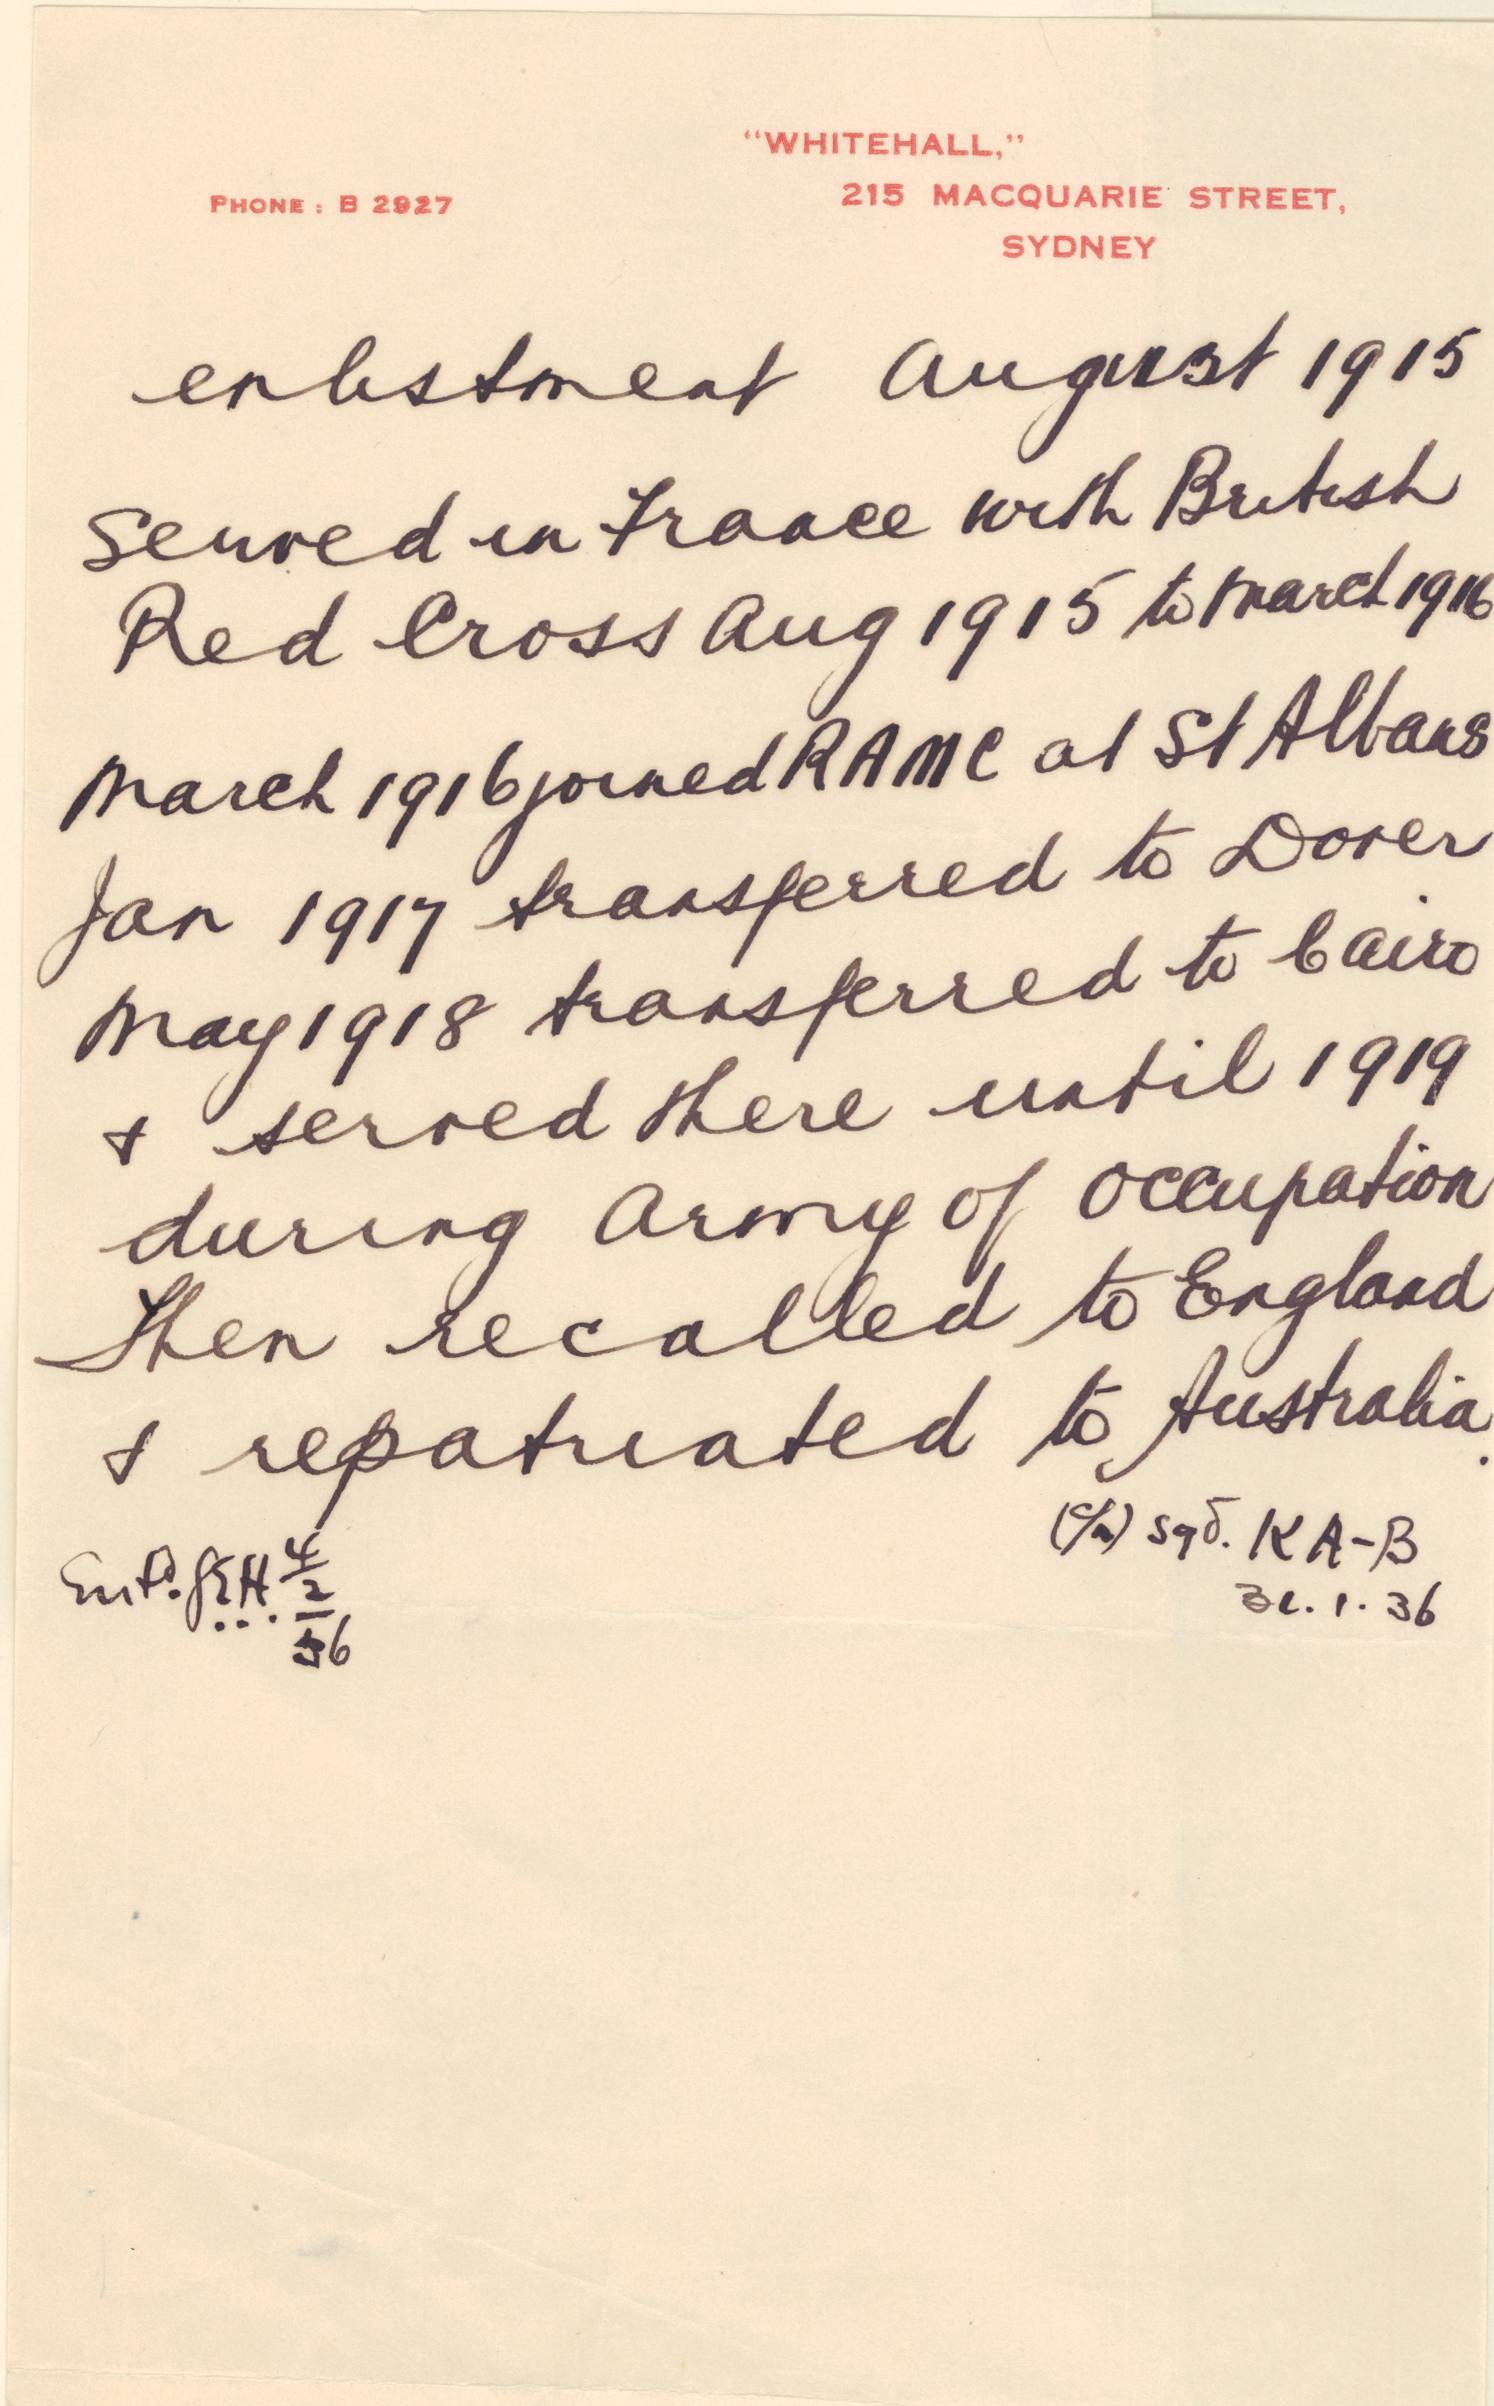 "WHITEHALL,"
PHONE: B 2927
215 MACQUARIE STREET,
SYDNEY
enlistment August 1915
Served in France with British
Red Cross Aug 1915 to March 1916
March 1916 joined RAMC at St Albans
Jan 1917 transferred to Dover
May 1918 transferred to Cairo
& served there until 1919
during Army of Occupation
Then recalled to England
& repatriated to Australia.
sgd. K A-B
.1.36
Entd. J.E.H. 4/2/36